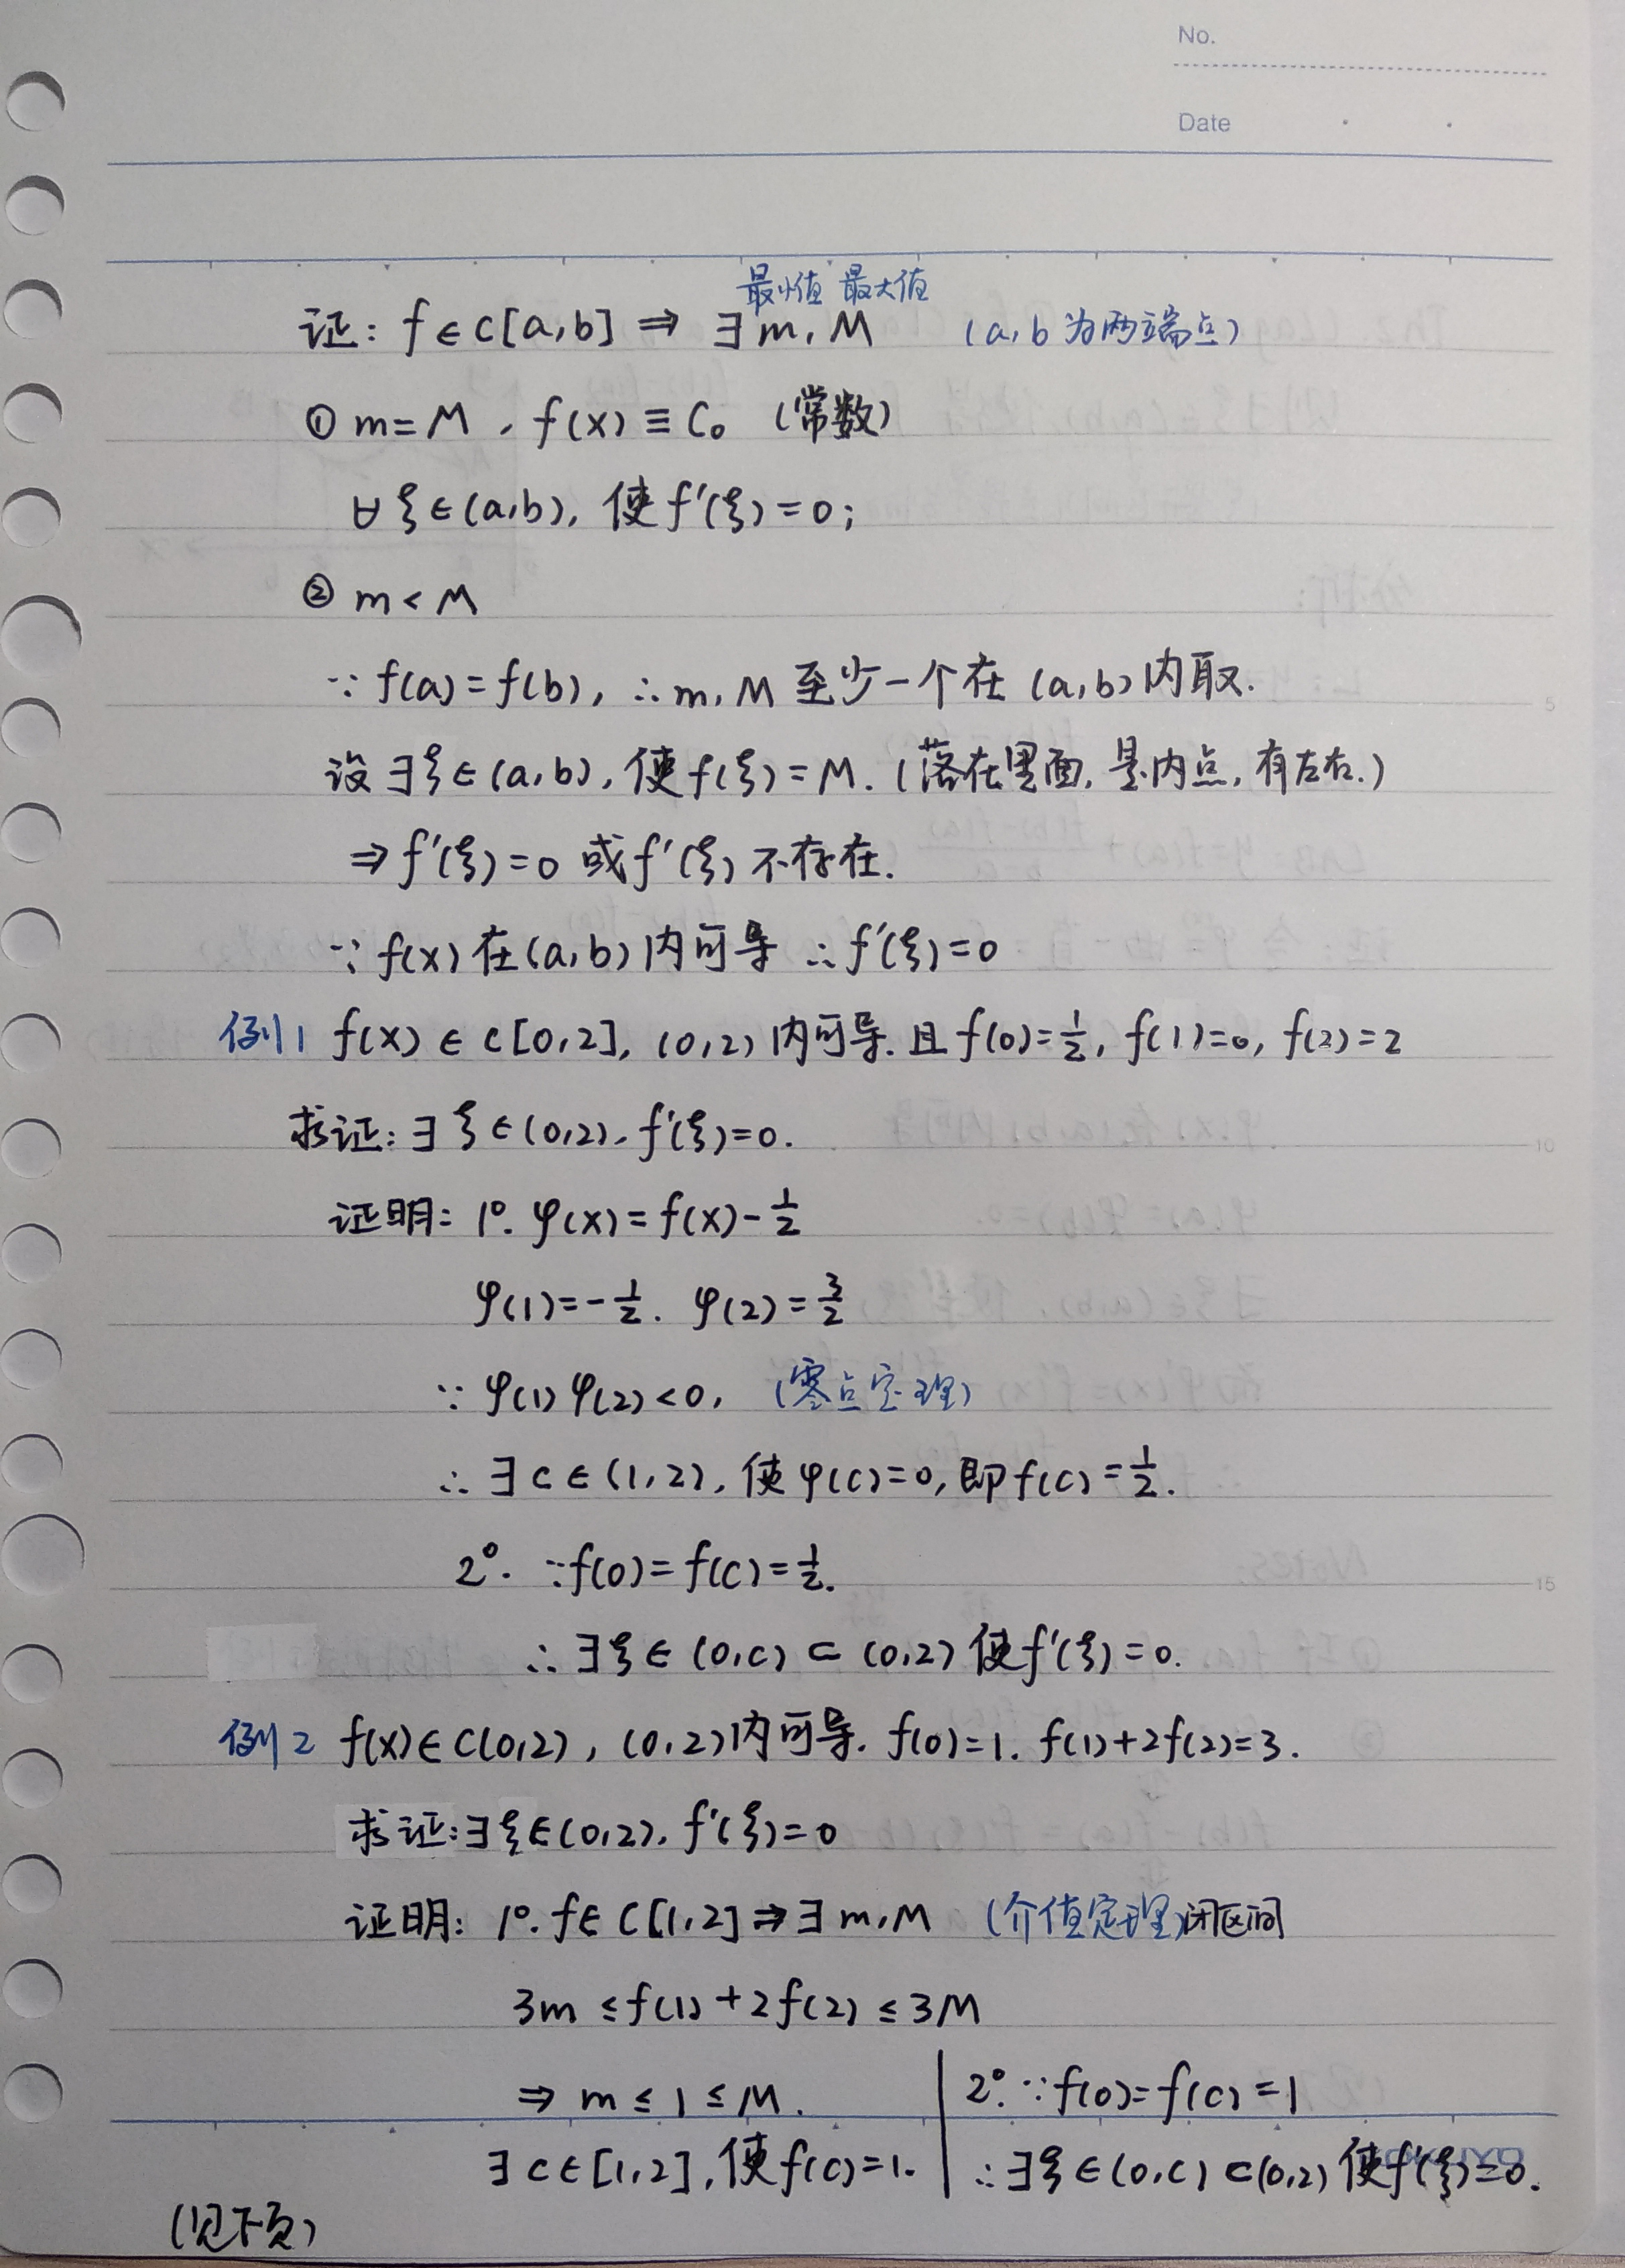 No.
Date
最小值 最大值
证: f∈C[a,b] ⇒ ∃ m, M (a,b 为两端点)
① m=M, f(x)≡C₀ (常数)
∀ξ∈(a,b), 使f′(ξ)=0;
② m<M
∵ f(a)=f(b), ∴m, M 至少一个在 (a,b) 内取.
5
设∃ξ∈(a,b), 使f(ξ)=M. (落在里面, 是内点, 有左右.)
⇒f′(ξ)=0 或f′(ξ) 不存在.
∵ f(x) 在(a,b) 内可导 ∴f′(ξ)=0
例1 f(x)∈C[0,2], (0,2) 内可导. 且 f(0)=1/2, f(1)=0, f(2)=2
求证: ∃ξ∈(0,2), f′(ξ)=0.
10
证明: 1°. φ(x)=f(x)-1/2
φ(1)=-1/2. φ(2)=3/2
∵ φ(1)φ(2)<0, (零点定理)
∴ ∃c∈(1,2), 使φ(c)=0, 即f(c)=1/2.
2°. ∵f(0)=f(c)=1/2.
15
∴∃ξ∈(0,c)⊂(0,2) 使f′(ξ)=0.
例2 f(x)∈C(0,2), (0,2)内可导. f(0)=1. f(1)+2f(2)=3.
求证:∃ξ∈(0,2), f′(ξ)=0
证明: 1°. f∈C[1,2]⇒∃ m, M (介值定理)闭区间
3m≤f(1)+2f(2)≤3M
⇒ m≤1≤M.
∃c∈[1,2], 使f(c)=1.
2°. ∵f(0)=f(c)=1
∴∃ξ∈(0,c)⊂(0,2) 使f′(ξ)=0.
(见下页)